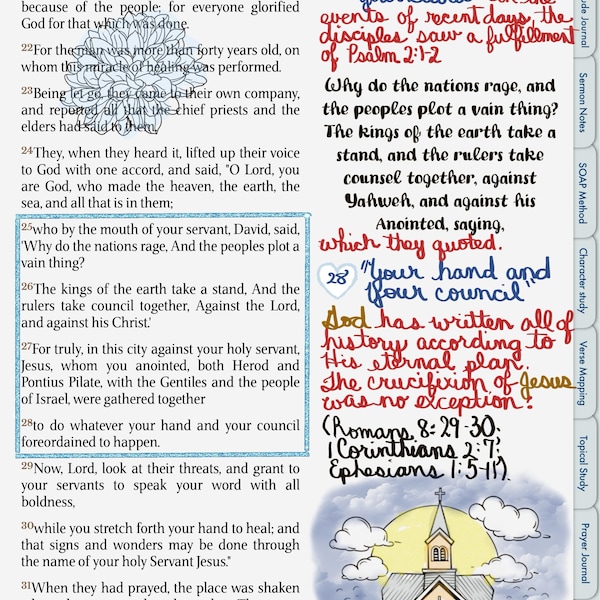 because of the people; for everyone glorified
God for that which was done.
22For the man was more than forty years old, on
whom this miracle of healing was performed.
23Being let go, they came to their own company,
and reported all that the chief priests and the
elders had said to them.
24They, when they heard it, lifted up their voice
to God with one accord, and said, "O Lord, you
are God, who made the heaven, the earth, the
sea, and all that is in them;
25who by the mouth of your servant, David, said,
'Why do the nations rage, And the peoples plot a
vain thing?
26The kings of the earth take a stand, And the
rulers take council together, Against the Lord,
and against his Christ.'
27For truly, in this city against your holy servant,
Jesus, whom you anointed, both Herod and
Pontius Pilate, with the Gentiles and the people
of Israel, were gathered together
28to do whatever your hand and your council
foreordained to happen.
29Now, Lord, look at their threats, and grant to
your servants to speak your word with all
boldness,
30while you stretch forth your hand to heal; and
that signs and wonders may be done through
the name of your holy Servant Jesus."
31When they had prayed, the place was shaken
events of recent days, the
disciples saw a fulfillment
of Psalm 2:1-2
Why do the nations rage, and
the peoples plot a vain thing?
The kings of the earth take a
stand, and the rulers take
counsel together, against
Yahweh, and against his
Anointed, saying,
which they quoted.
28 "Your hand and
Your council"
God has written all of
history according to
His eternal plan.
The crucifixion of Jesus
was no exception!
(Romans 8:29-30;
1 Corinthians 2:7;
Ephesians 1:5-11).
Journal
Sermon Notes
SOAP Method
Character study
Verse Mapping
Topical Study
Prayer Journal